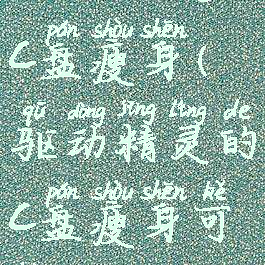 pán shòu shēn
C盘瘦身(
qū dòng jīng líng de
驱动精灵的
pán shòu shēn kě
C盘瘦身可